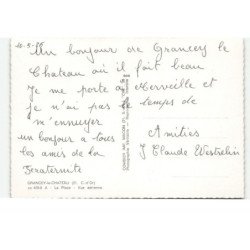 Un bonjour de Grancey le
Chateau où il fait beau
Je me porte a Merveille et
je n'ai pas le temps de
m'ennuyer
un bonjour a tous
les amis de la
Fraternité
Amitiés
J Claude Westrelin
GRANCEY-le-CHATEAU (21. C.-d'Or)
La Place - Vue aérienne